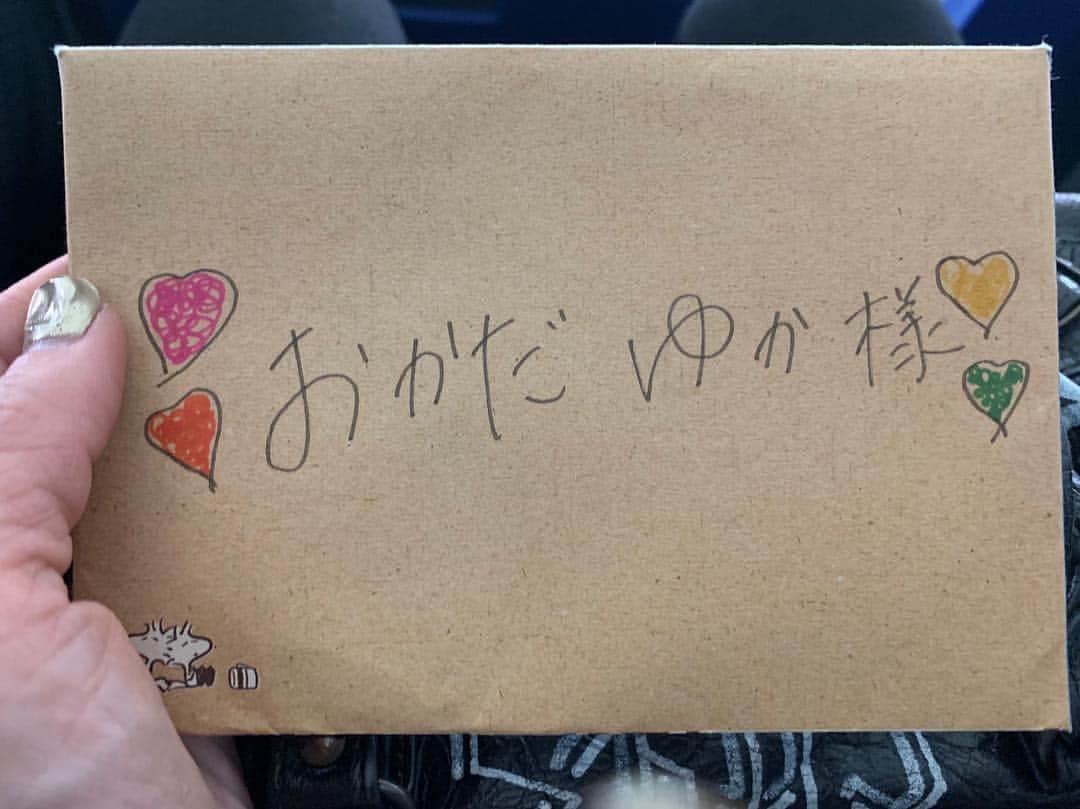 おかだ ゆか様